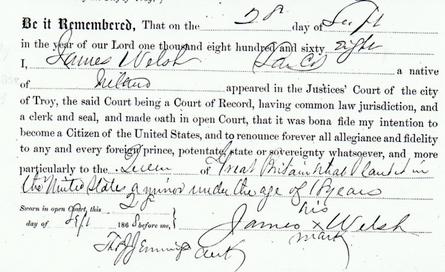 Be it Remembered, That on the 28 day of Sept
in the year of our Lord one thousand eight hundred and sixty eight
I, James Welsh a native
of Ireland appeared in the Justices' Court of the city
of Troy, the said Court being a Court of Record, having common law jurisdiction, and
a clerk and seal, and made oath in open Court, that it was bona fide my intention to
become a Citizen of the United States, and to renounce forever all allegiance and fidelity
to any and every foreign prince, potentate, state or sovereignty whatsoever, and more
particularly to the Queen of Great Britain that I landed in
the United States a minor under the age of 18 years
Sworn in open Court, this 28
day of Sept 1868 before me,
his
James x Welsh
mark
Clerk